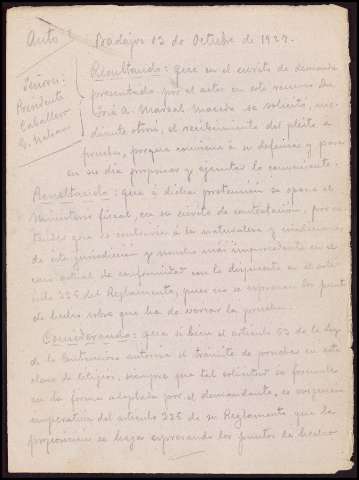 Auto
Badajoz 13 de Octubre de 1927.
Señores:
Presidente
Caballero
G. 
Resultando: que en el escrito de demanda
presentado por el actor en este recurso Don
José A. Marzal Macedo se solicitó, me-
diante otrosí, el recibimiento del pleito á
prueba, porque conviene á su defensa y para
en su dia proponer y ejecutar la conveniente.
Resultando: que á dicha pretensión se opone el
Ministerio fiscal, en su escrito de contestación, por en-
tender que es contraria á la naturaleza y
de esta jurisdicción y mucho más improcedente en el
caso actual de conformidad con lo dispuesto en el artí-
culo 326 del Reglamento, pues no se expresan los puntos
de hecho sobre que ha de versar la prueba.
Considerando: que si bien el artículo 53 de la Ley
de lo Contencioso autoriza el trámite de pruebas en esta
clase de litigios, siempre que tal solicitud se formule
en la forma adoptada por el demandante, es exigencia
imperativa del artículo 326 de su Reglamento que la
proposición se haga expresando los puntos de hecho